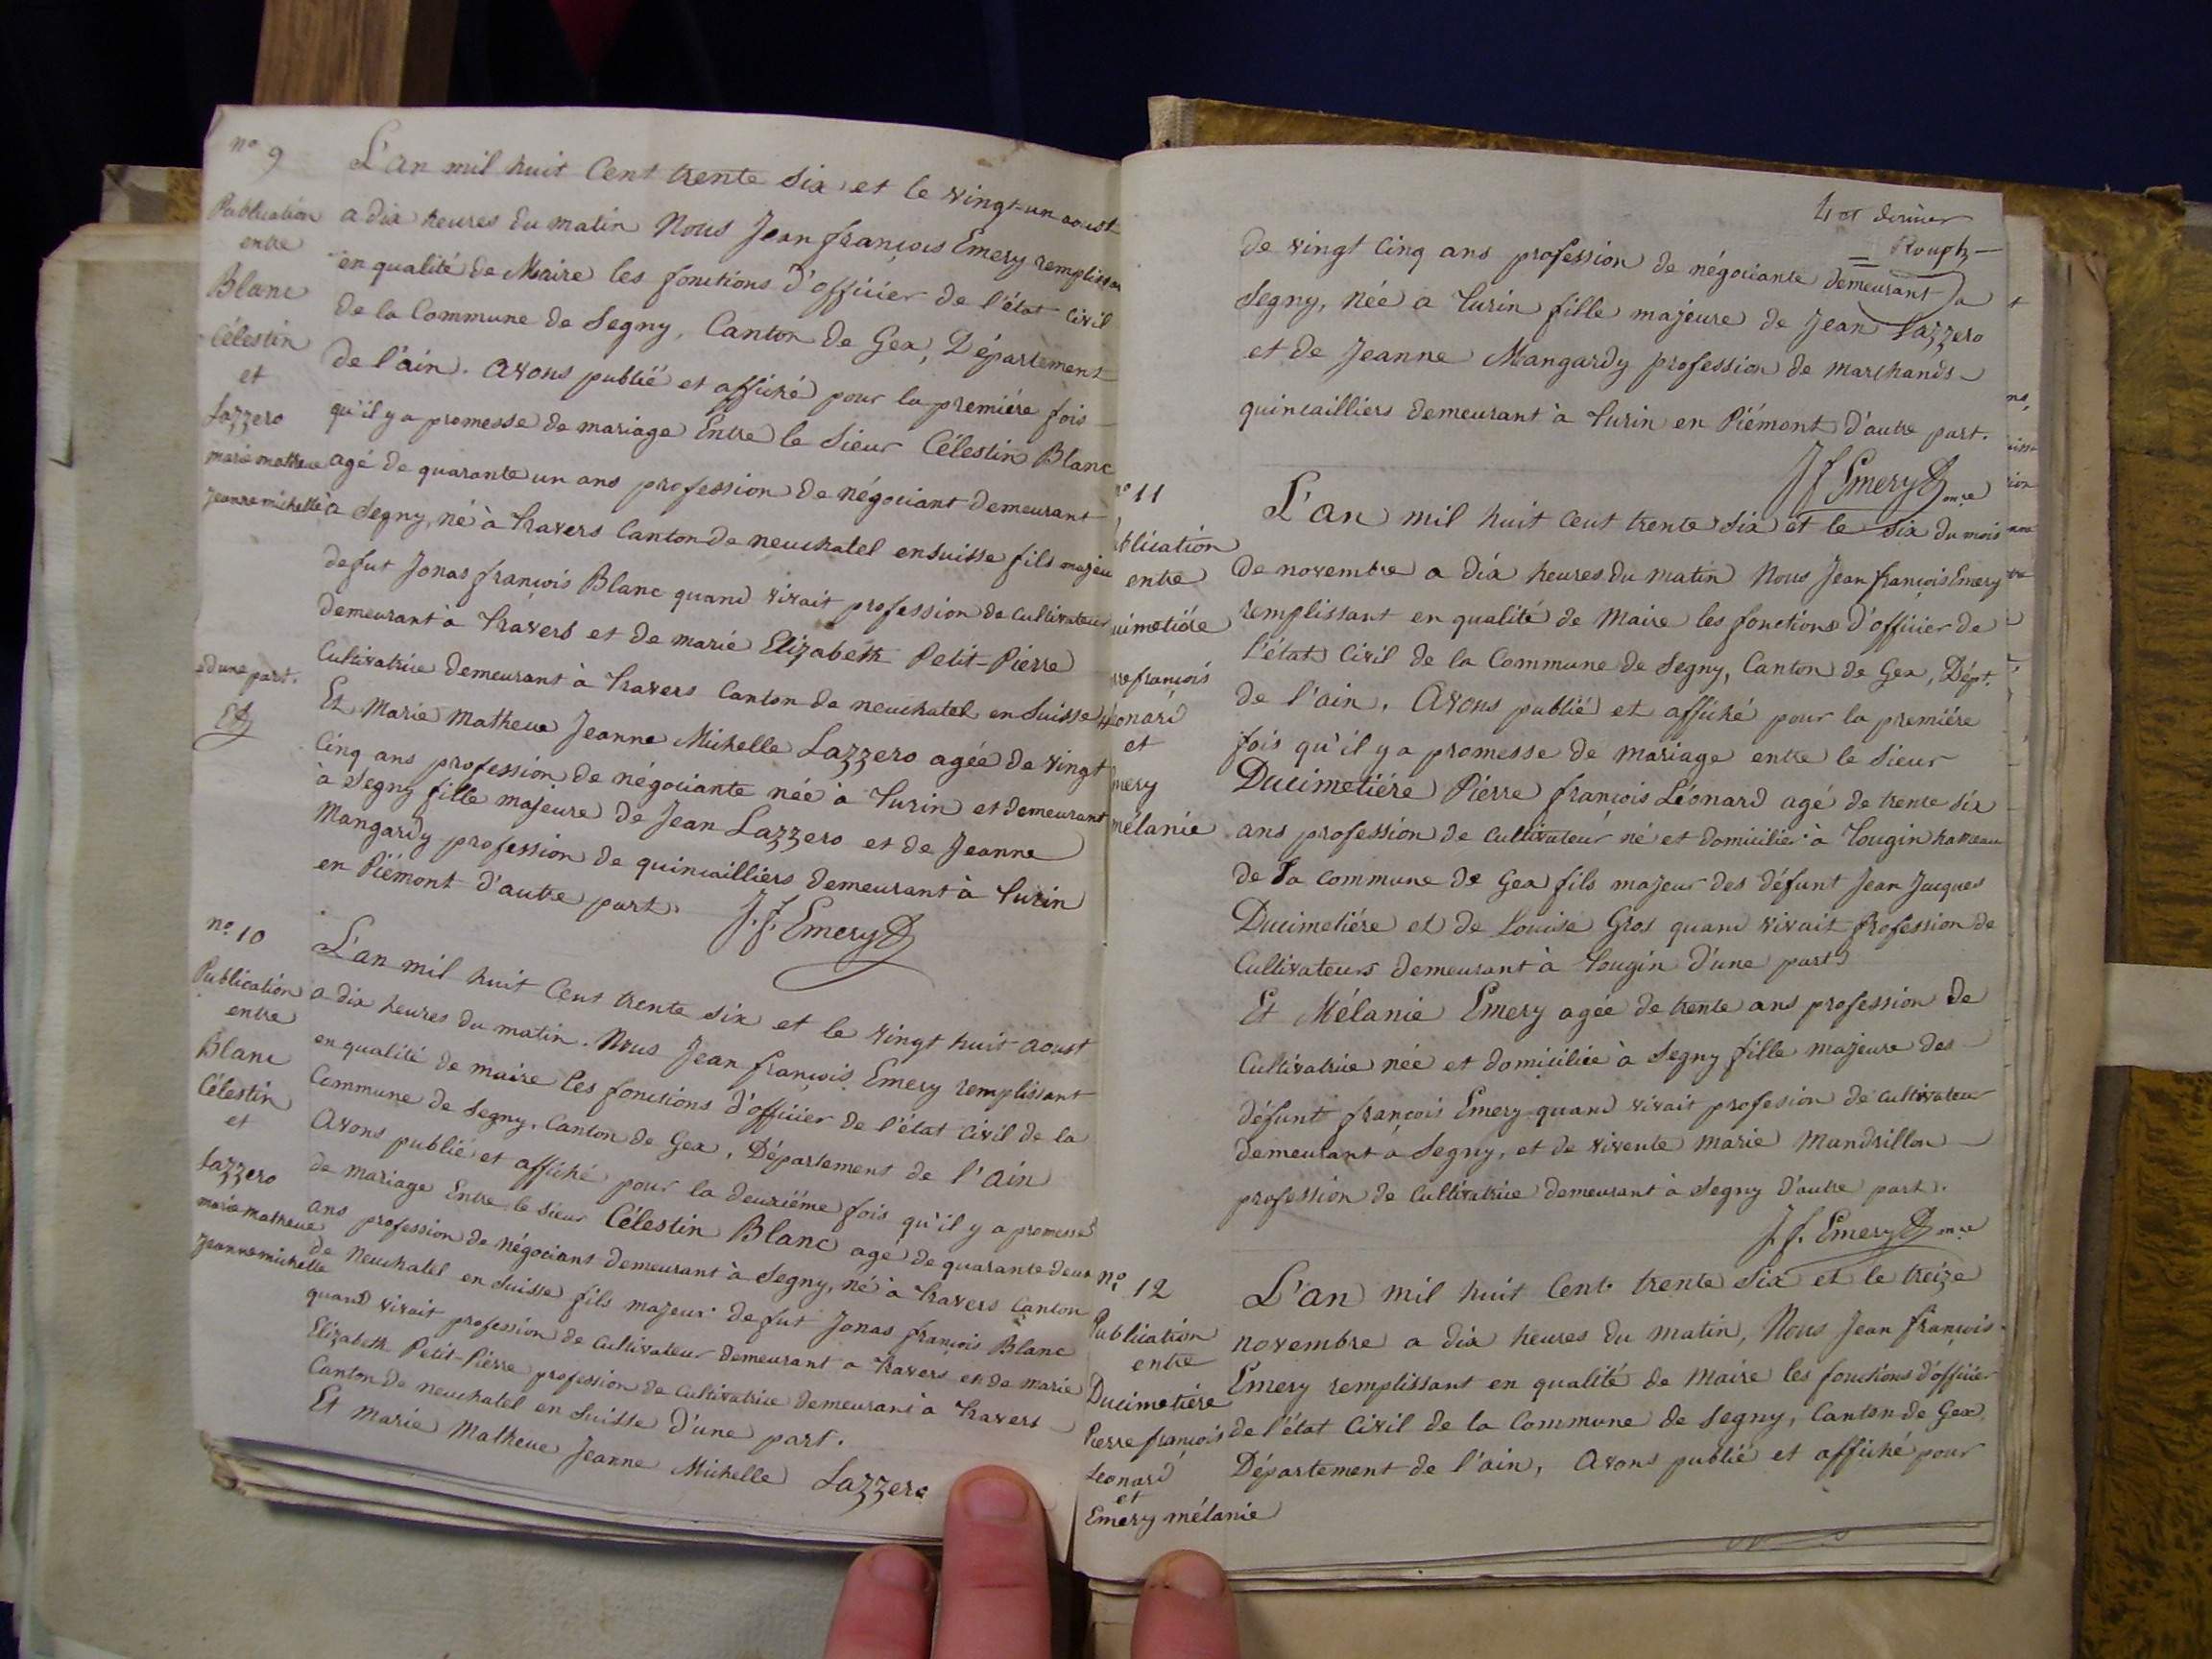 nº 9
Publication
entre
Blanc
Célestin
et
Lazzero
marie matheue
Jeanne michelle
L'an mil huit Cent trente six et le vingt-un aoust
a dix heures du matin Nous Jean françois Emery remplissa
en qualité de Maire les fonctions d'officier de l'état Civil
de la Commune de Segny, Canton de Gex, Département
de l'ain. Avons publié et affiché pour la premiére fois
qu'il y a promesse de mariage Entre le Sieur Célestin Blanc
agé de quarante un ans profession de négociant demeurant
à Segny, né à Travers Canton de neuchatel en Suisse fils majeu
de fut Jonas françois Blanc quand vivait profession de Cultivateur
demeurant à Travers et de marie Elizabeth Petit-Pierre
Cultivatrice demeurant à Travers Canton de neuchatel en Suisse
d'une part.
Et Marie Matheue Jeanne Michelle Lazzero agée de vingt
Cinq ans profession de négociante née à Turin et demeurant
à Segny fille majeure de Jean Lazzero et de Jeanne
Mangardy profession de quincailliers demeurant à Turin
en Piémont d'autre part. J. f. Emery
nº 10
Publication
entre
Blanc
Célestin
et
Lazzero
marie matheue
Jeanne michelle
L'an mil huit Cent trente six et le vingt huit aoust
a dix heures du matin. Nous Jean françois Emery remplissant
en qualité de maire les fonctions d'officier de l'état Civil de la
Commune de Segny, Canton de Gex, Département de l'ain
Avons publié et affiché pour la deuxiéme fois qu'il y a promesse
de mariage Entre le Sieur Célestin Blanc agé de quarante deux
ans profession de négociant demeurant à Segny, né à Travers Canton
de Neuchatel en Suisse fils majeur de fut Jonas françois Blanc
quand vivait profession de Cultivateur demeurant a Travers et de marie
Elizabeth Petit-Pierre profession de Cultivatrice demeurant à Travers
Canton de neuchatel en Suisse d'une part.
Et Marie Matheue Jeanne Michelle Lazzero
4 et dernier
Rouph
de vingt Cinq ans profession de négociante demeurant a
Segny, née a Turin fille majeure de Jean Lazzero
et de Jeanne Mangardy profession de marchands
quincailliers demeurant à Turin en Piémont d'autre part.
J f Emery
nº 11
blication
entre
uimetiére
rre françois
Léonard
et
mery
mélanie
L'an mil huit cent trente six et le six du mois
de novembre a dix heures du matin Nous Jean françois Emery
remplissant en qualité de Maire les fonctions d'officier de
l'état Civil de la Commune de Segny, Canton de Gex, Dépt.
de l'ain. Avons publié et affiché pour la premiére
fois qu'il y a promesse de mariage entre le Sieur
Ducimetiére Pierre françois Léonard agé de trente six
ans profession de Cultivateur né et domicilier à Tougin hameau
de la commune de Gex fils majeur des défunt Jean Jacques
Ducimetiére et de Louise Gros quand vivait Profession de
Cultivateurs demeurant à Tougin d'une part
Et Mélanie Emery agée de trente ans profession de
Cultivatrice née et domiciliée à Segny fille majeure des
défunt françois Emery quand vivait profesion de cultivateur
demeurant à Segny, et de vivente Marie Mandrillon
profession de Cultivatrice demeurant à Segny d'autre part.
J. f. Emery
nº 12
Publication
entre
Ducimetiére
Pierre françois
Leonard
et
Emery mélanie
L'an mil huit Cent trente six et le treize
novembre a dix heures du matin, Nous Jean françois
Emery remplissant en qualité de Maire les fonctions d'officier
de l'état Civil de la Commune de Segny, Canton de Gex,
Département de l'ain, Avons publié et affiché pour